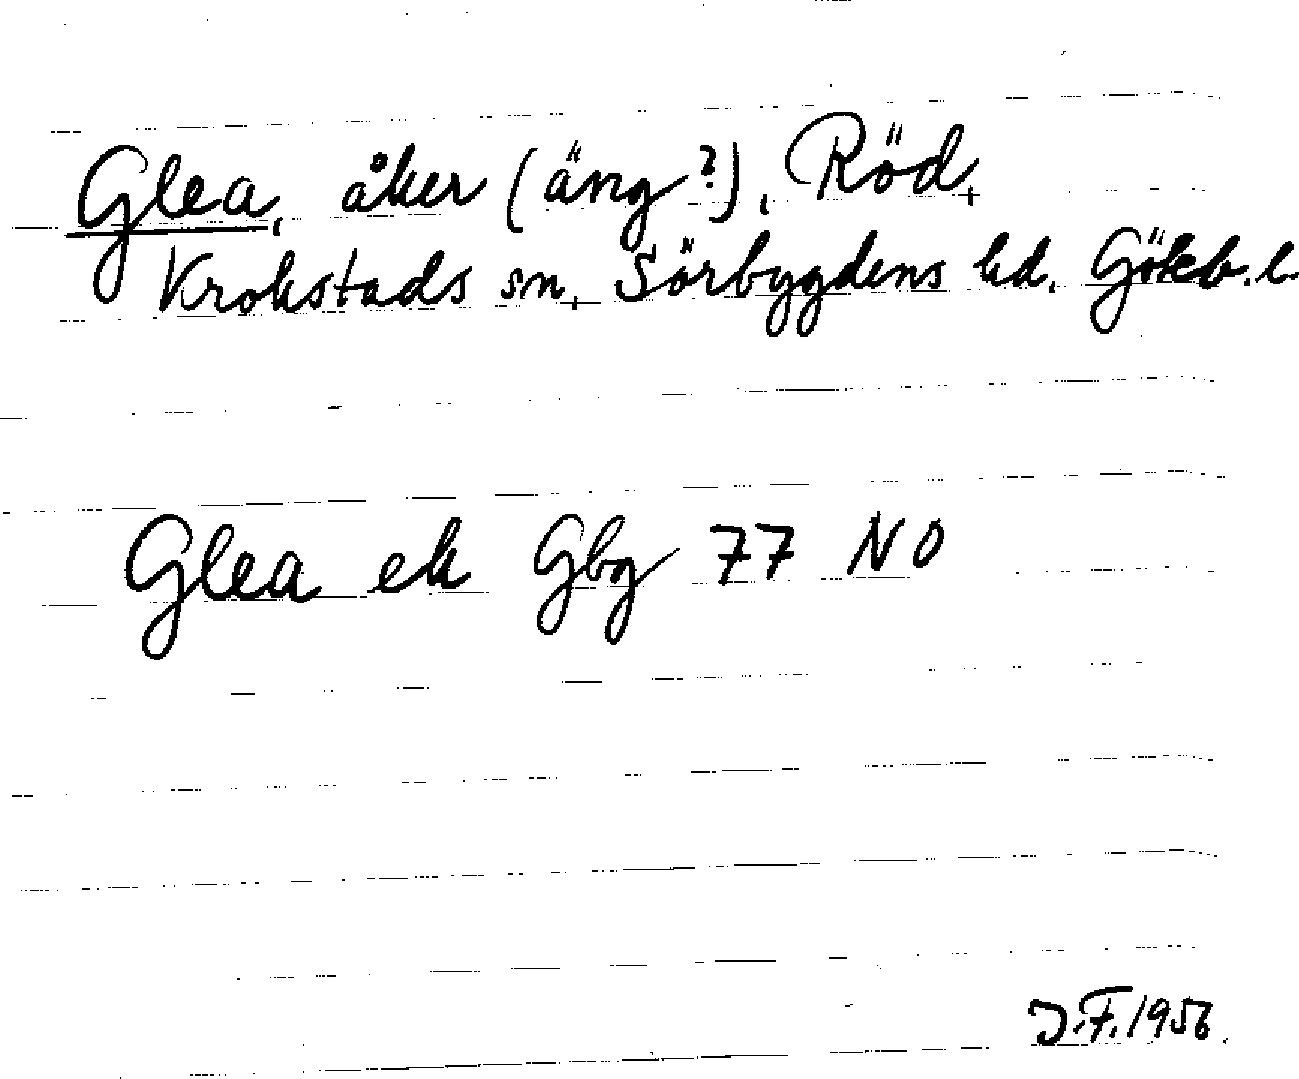 Glea, åker (äng?), Röd,
Krokstads sn, Sörbygdens hd. Göteb. l.
Glea ek Gbg 77 NO
J.F. 1956.